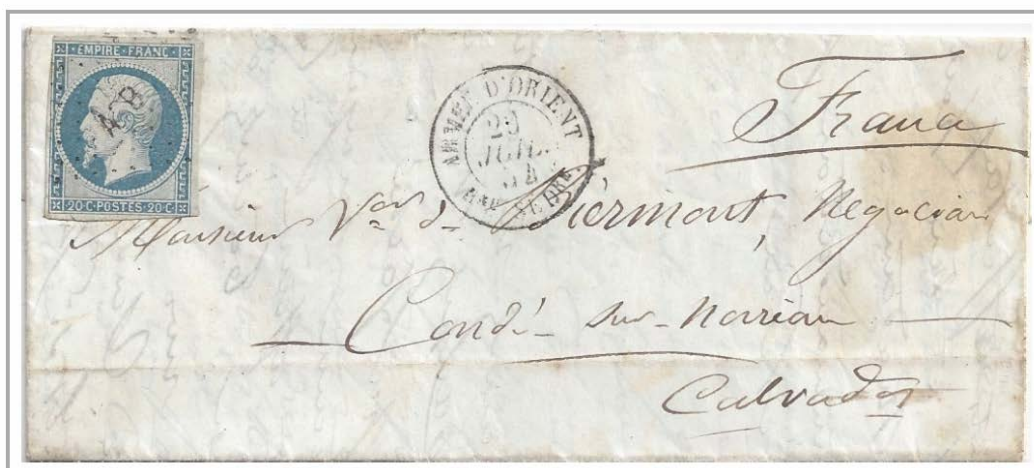 EMPIRE · FRANC ·
20·C·POSTES·20·C
ARMÉE D'ORIENT
JUIL.
54
France
Monsieur Vor de Piermont, Negociant
Condé sur Noireau
Calvados